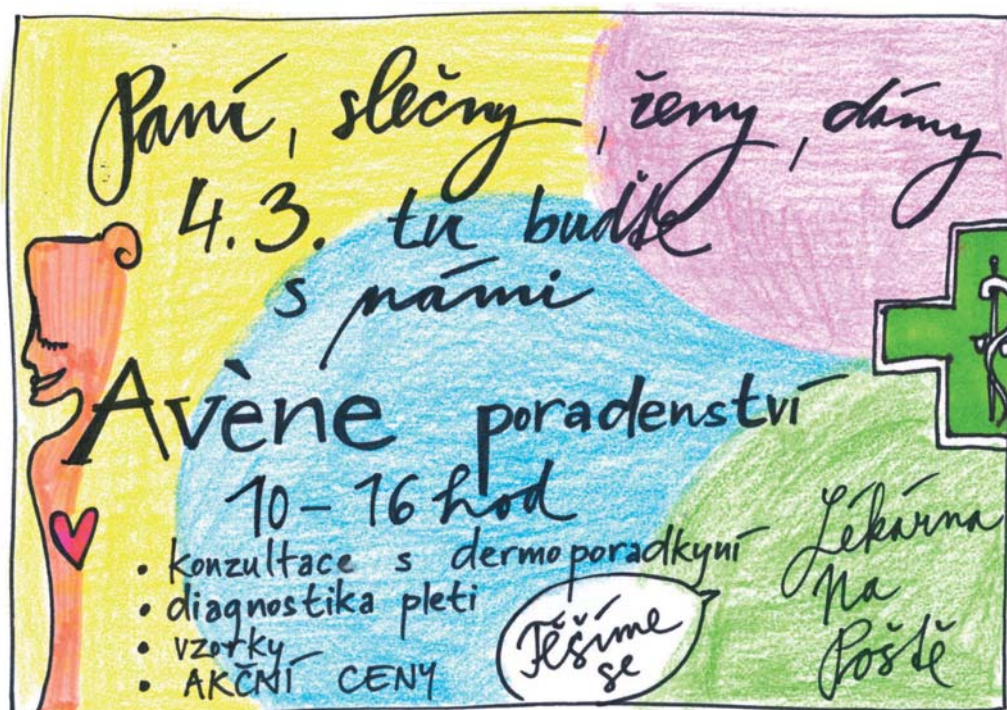 Paní, slečny, ženy, dámy
4.3. tu buďte
s námi
Avène poradenství
10 – 16 hod
• konzultace s dermoporadkyní
• diagnostika pleti
• vzorky
• AKČNÍ CENY
Těšíme
se
Lékárna
Na
Poště